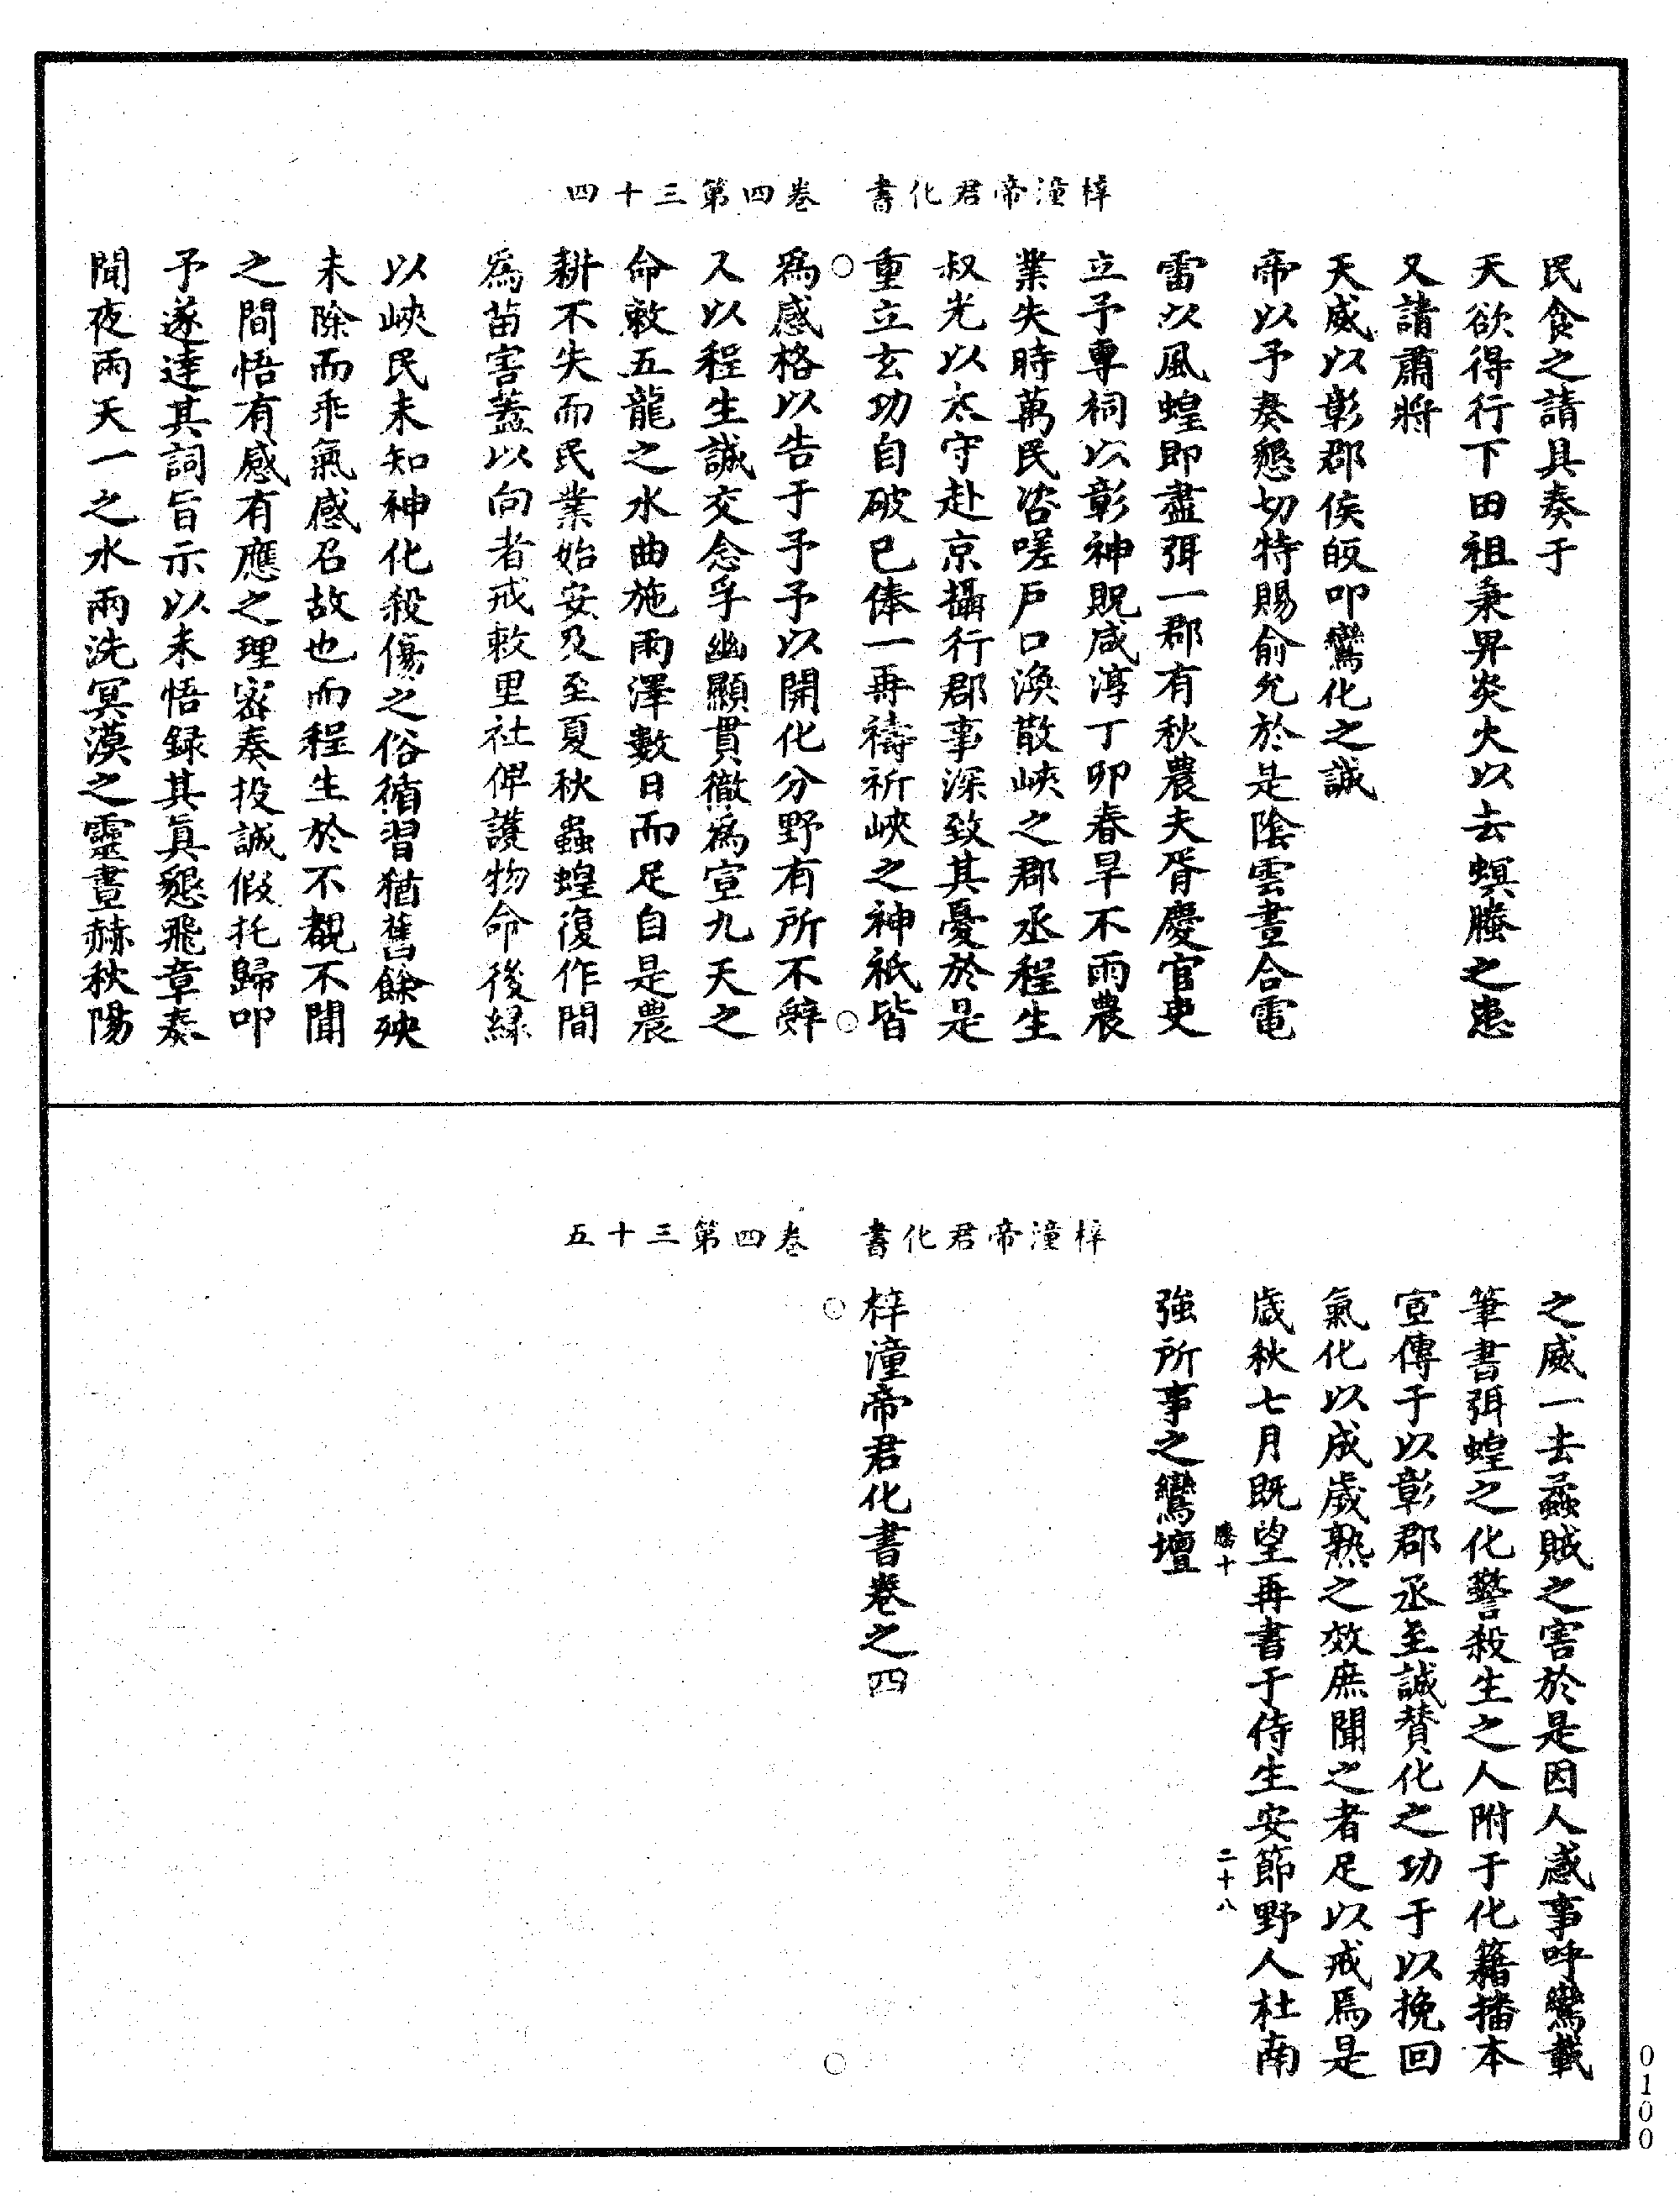 梓潼帝君化書　卷四第三十四
民食之請具奏于
天欲得行下田祖秉畀炎火以去螟螣之患
又請肅將
天威以彰郡侯皈叩鸞化之誠
帝以予奏懇切特賜俞允於是陰雲晝合電
雷以風蝗即盡弭一郡有秋農夫胥慶官吏
立予專祠以彰神貺咸淳丁卯春旱不雨農
業失時萬民咨嗟戶口渙散峽之郡丞程生
叔光以太守赴京攝行郡事深致其憂於是
重立玄功自破已俸一再禱祈峽之神祇皆
爲感格以告于予予以開化分野有所不辭
又以程生誠交念孚幽顯貫徹爲宣九天之
命敕五龍之水曲施雨澤數日而足自是農
耕不失而民業始安及至夏秋蟲蝗復作間
爲苗害蓋以向者戒敕里社俾護物命後緑
以峽民未知神化殺傷之俗循習猶舊餘殃
未除而乖氣感召故也而程生於不覩不聞
之間悟有感有應之理密奏投誠假托歸叩
予遂達其詞旨示以未悟録其真懇飛章奏
聞夜雨天一之水雨洗冥漠之靈晝赫秋陽
梓潼帝君化書　卷四第三十五
之威一去蟊賊之害於是因人感事呼鸞載
筆書弭蝗之化警殺生之人附于化籍播本
宣傳于以彰郡丞至誠賛化之功于以挽回
氣化以成歲熟之效庶聞之者足以戒焉是
歲秋七月既望再書于侍生安節野人杜南
騰十　二十八
強所事之鸞壇
梓潼帝君化書卷之四
0100